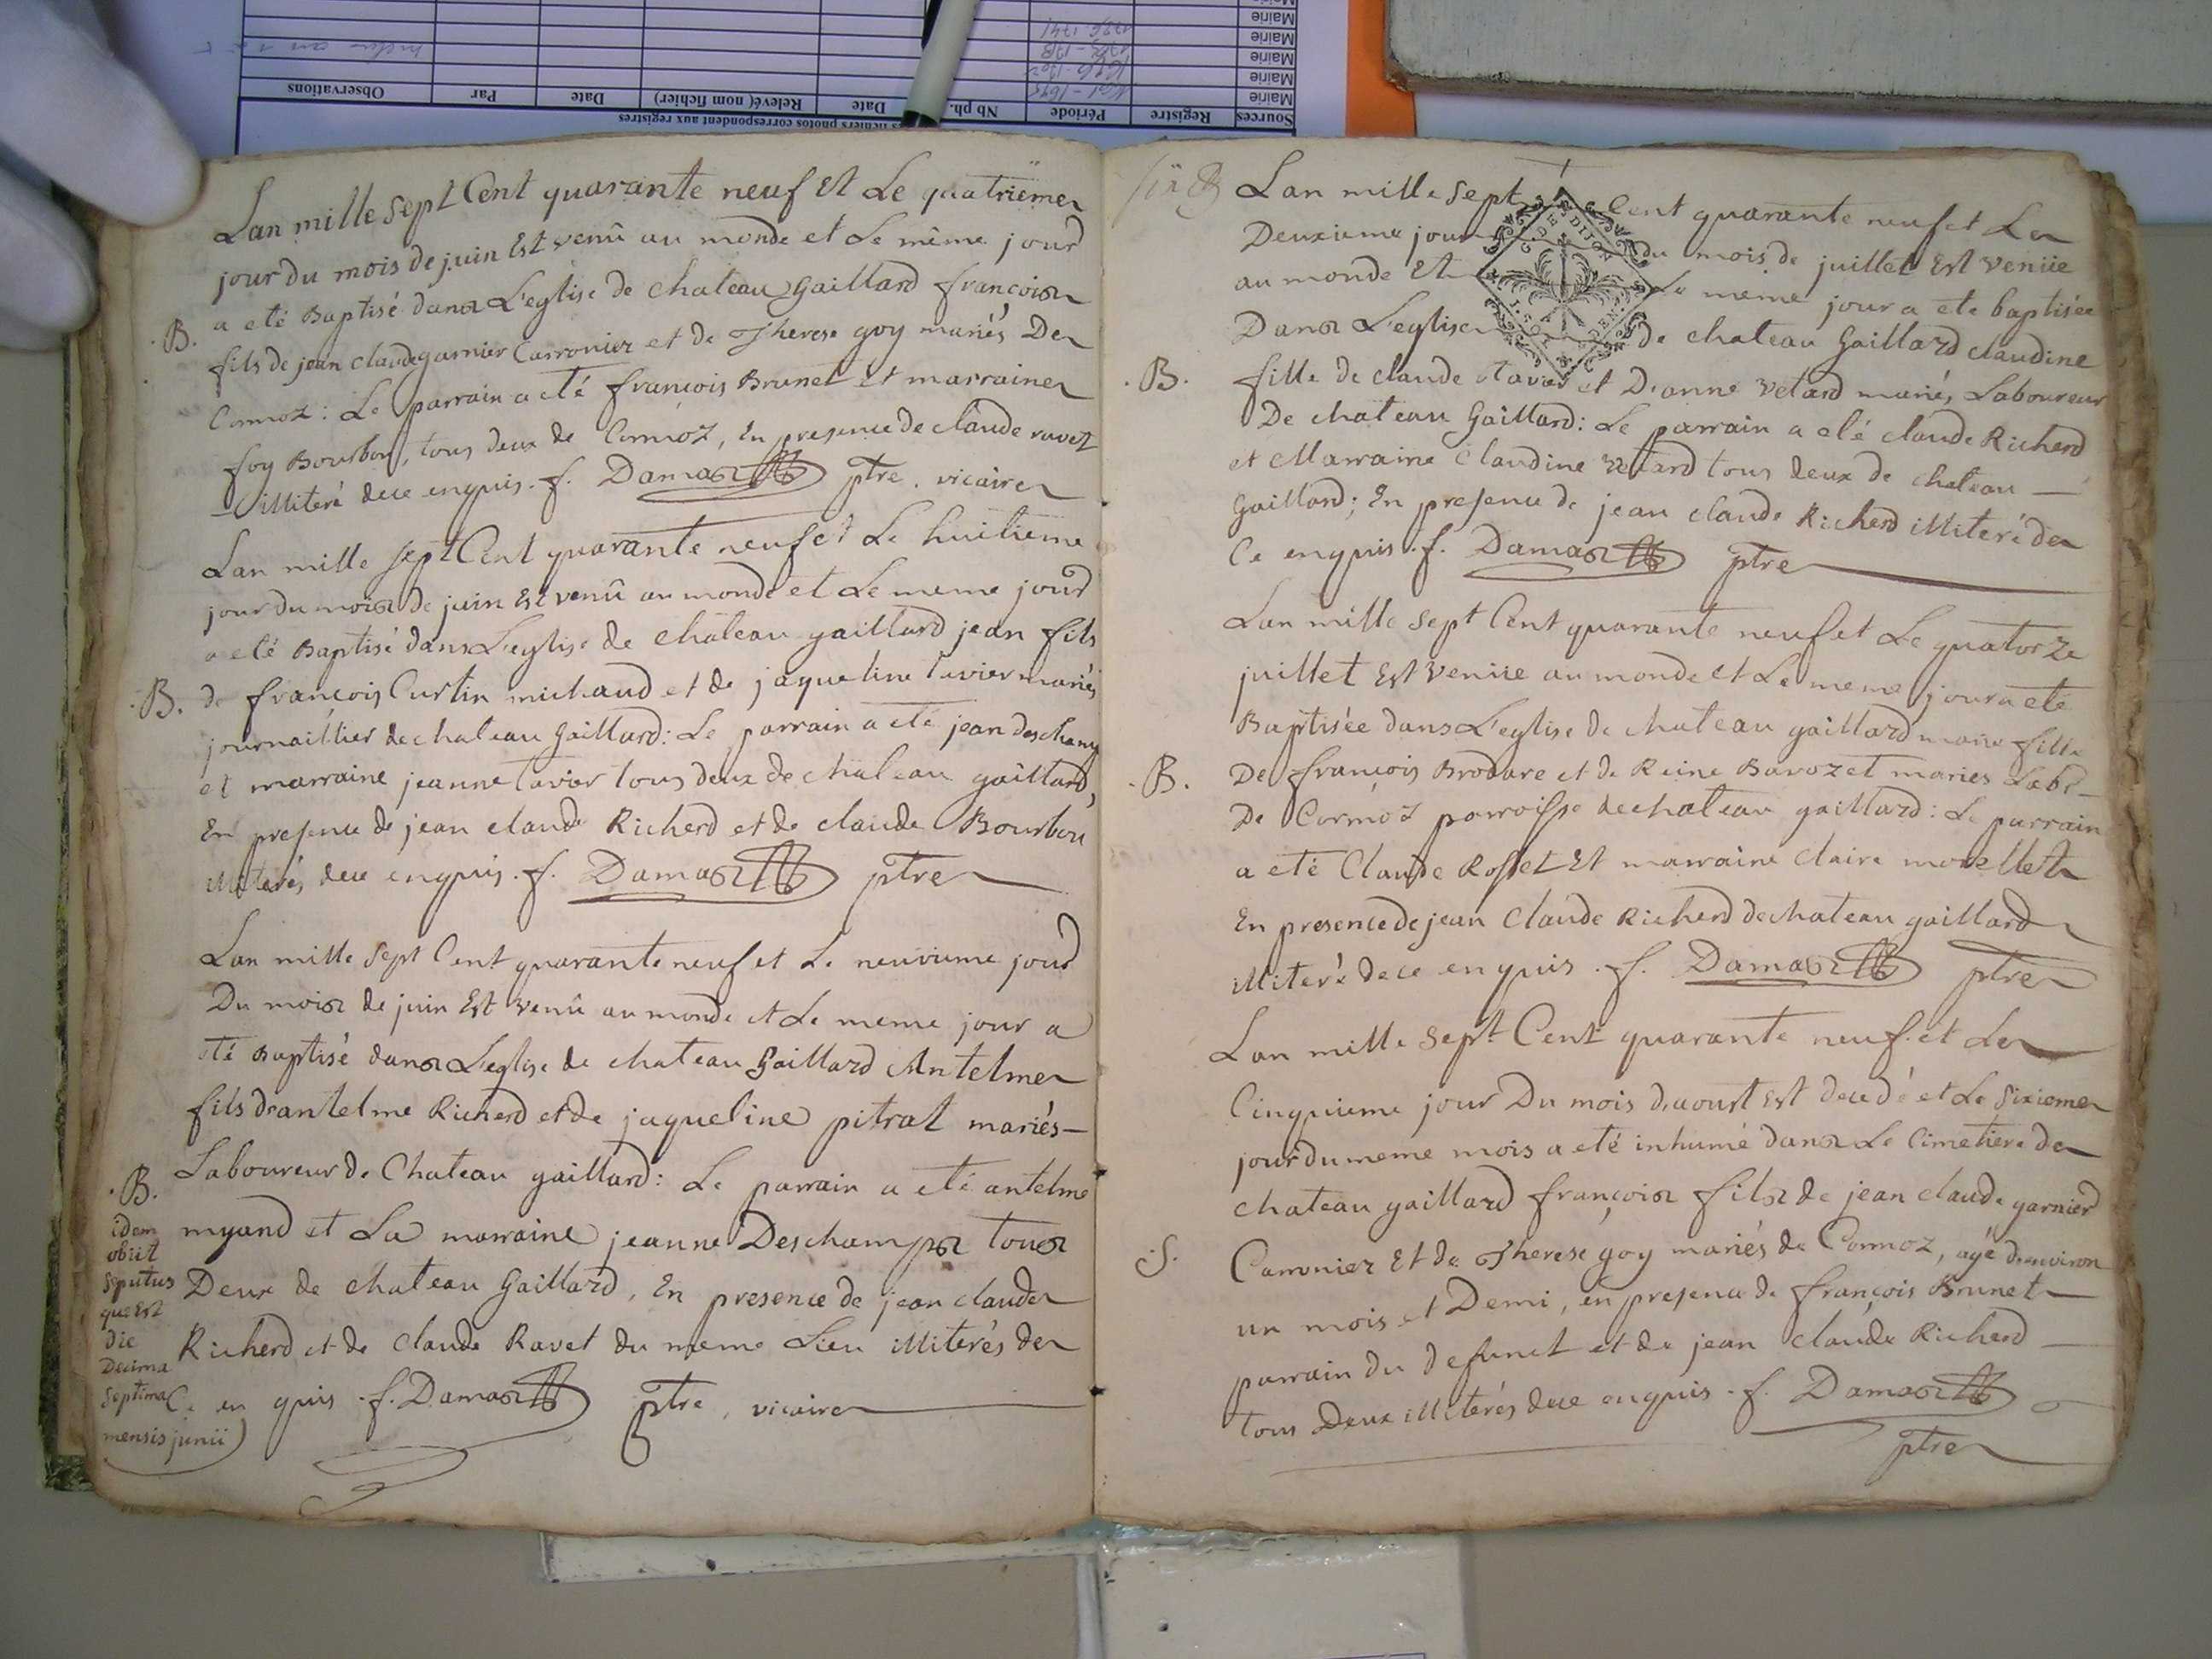 Sources Registre Période Nb ph. Date Relevé(nom fichier) Date Par Observations
Mairie
Mairie
Mairie
Mairie
Mairie
Lan mille sept Cent quarante neuf et Le quatrieme
jour du mois de juin Est venû au monde et Le même jour
a eté Baptisé dans L'eglise de chateau Gaillard francois
.B.
fils de jean claude garnier Carronier et de Therese goy mariés De
Cormoz : Le parrain a eté françois Brunet et marraine
foy Bourbon, tous deux de Cormoz, En presence de claude ravet
illiteré de ce enquis . f. Damas ptre . vicaire
Lan mille sept Cent quarante neuf et Le huitieme
jour du mois de juin Est venû au monde et Le meme jour
a eté Baptisé dans L'eglise de château gaillard jean fils
.B.
de françois Curtin michaud et de jaqueline tavier mariés
journaillier de chateau Gaillard : Le parrain a eté jean deschamp
et marraine jeanne tavier tous deux de château gaillard,
En presence de jean claude Richerd et de claude Bourbon
illiterés de ce enquis . f. Damas ptre
Lan mille sept Cent quarante neuf et Le neuvieme jour
Du mois de juin Est venû au monde et Le meme jour a
eté Baptisé dans L'eglise de chateau Gaillard Antelme
fils d'antelme Richerd et de jaqueline pitrat mariés
.B.
Laboureur de Chateau gaillard : Le parrain a eté antelme
myand et La marraine jeanne Deschamps tous
Deux de chateau Gaillard, En presence de jean claude
Richerd et de Claude Ravet du meme Lieu illiterés de
Ce en quis . f. Damas ptre , vicaire
idem
obiit
seputus
que Est
die
Decima
septima
mensis junii
Lan mille sept Cent quarante neuf et Le
Deuxieme jour du mois de juillet Est venüe
au monde Et Le meme jour a ete baptisée
Dans L'eglise de chateau Gaillard claudine
.B.
fille de claude tavier et D'anne vetard mariés Laboureur
De château Gaillard : Le parrain a eté claude Richerd
et Marraine Claudine vetard tous deux de chateau
Gaillard ; En presence de jean claude Richerd illiteré de
Ce enquis . f. Damas ptre
Lan mille sept Cent quarante neuf et Le quatorze
juillet Est venüe au monde et Le meme jour a eté
Baptisée dans L'eglise de chateau gaillard marie fille
.B.
De françois Brodare et de Reine Bavozet mariés Labr
De Cormoz parroisse de chateau gaillard : Le parrain
a eté Claude Rosset Et marraine Claire morellet
En presence de jean Claude Richerd de chateau gaillard
illiteré de ce en quis . f. Damas ptre
Lan mille sept Cent quarante neuf et Le
Cinquieme jour Du mois d'aoust Est decedé et Le sixieme
jour du meme mois a eté inhumé dans Le Cimetiere de
chateau gaillard françois fils de jean claude garnier
.S.
Carronier Et de Therese goy mariés de Cormoz, agé d'environ
un mois et Demi, en presence de françois Brunet
parrain du defunct et de jean claude Richerd
tous Deux illiterés de ce enquis . f. Damas
ptre